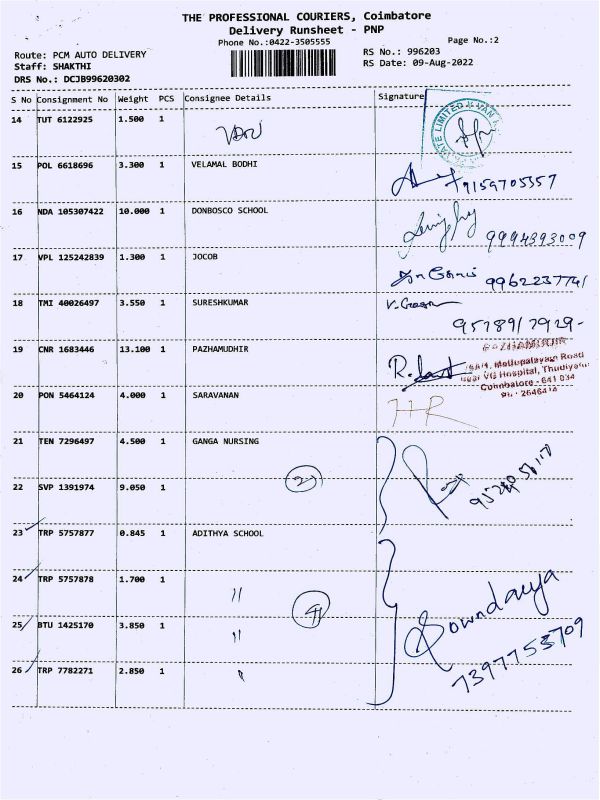 THE PROFESSIONAL COURIERS, Coimbatore
Delivery Runsheet - PNP
Phone No.:0422-3505555
Page No.:2
Route: PCM AUTO DELIVERY
RS No.: 996203
Staff: SHAKTHI
RS Date: 09-Aug-2022
DRS No.: DCJB99620302
S No Consignment No Weight PCS Consignee Details Signature
14 TUT 6122925 1.500 1
15 POL 6618696 3.300 1 VELAMAL BODHI
9159705357
16 NDA 105307422 10.000 1 DONBOSCO SCHOOL
9994393009
17 VPL 125242839 1.300 1 JOCOB
9962237741
18 TMI 40026497 3.550 1 SURESHKUMAR
19 CNR 1683446 13.100 1 PAZHAMUDHIR
PAZHAMUDIR
Mettupalayam Road
near VG Hospital, Thudiyalur
Coimbatore - 641 034
20 PON 5464124 4.000 1 SARAVANAN
HR
21 TEN 7296497 4.500 1 GANGA NURSING
2
22 SVP 1391974 9.050 1
23 TRP 5757877 0.845 1 ADITHYA SCHOOL
24 TRP 5757878 1.700 1 "
4
Sowndarya
25 BTU 1425170 3.850 1 "
7397753709
26 TRP 7782271 2.850 1 "